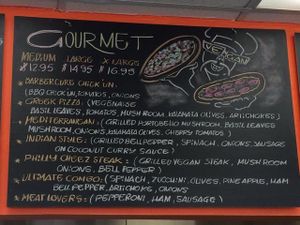 GOURMET
VEGAN
MEDIUM LARGE X LARGE
$12.95 $14.95 $16.95
BARBERCUNE CHICK'UN:
(BBQ CHICK'UN, TOMATOS, ONIONS
GREEK PIZZA: (VEGENAISE
BASIL LEAVES, TOMATOS, MUSHROOM, KALAMATA OLIVES, ARTICHOKES)
MEDITERRANEAN: (GRILLED PORTOBELLO MUSHROOM, BASIL LEAVES
MUSHROOM, ONIONS, KALAMATA OLIVES, CHERRY TOMATOS)
INDIAN STYLE: (GRILLED BELL PEPPER, SPINACH, ONIONS, SAUSAGE
ON COCONUT CURRY SAUCE)
PHILLY CHEEZ STEAK: (GRILLED VEGAN STEAK, MUSHROOM
ONIONS, BELL PEPPER)
ULTIMATE COMBO: (SPINACH, ZUCCHINI, OLIVES, PINEAPPLE, HAM
BELL PEPPER, ARTICHOKE, ONIONS
MEAT LOVERS: (PEPPERONI, HAM, SAUSAGE)